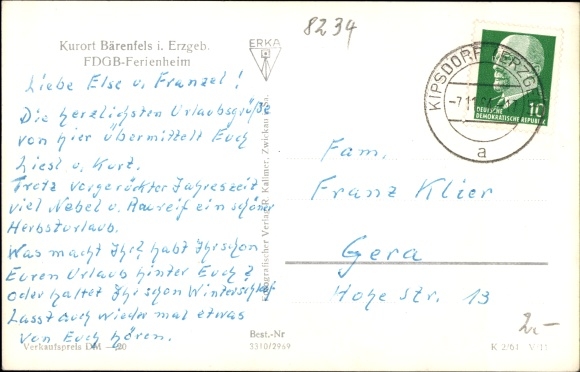 8234
Kurort Bärenfels i. Erzgeb.
FDGB-Ferienheim
Liebe Else u. Franzel!
Die herzlichsten Urlaubsgrüße
von hier übermittelt Euch
Liesl u. Kurt.
Trotz vorgerückter Jahreszeit
viel Nebel u. Raureif ein schöner
Herbsturlaub.
Was macht Ihr? habt Ihr schon
Euren Urlaub hinter Euch?
oder haltet Ihr schon Winterschlaf
Lasst auch wieder mal etwas
von Euch hören.
Verkaufspreis DM —,20
ERKA
Fotografischer Verlag R. Kallmer, Zwickau
Best.-Nr
3310/2969
KIPSDORF (ERZGEB
-7.11
a
10
DEUTSCHE
DEMOKRATISCHE REPUBLIK
Fam.
Franz Klier
Gera
Hohe Str. 13
2,-
K 2/61 V 11